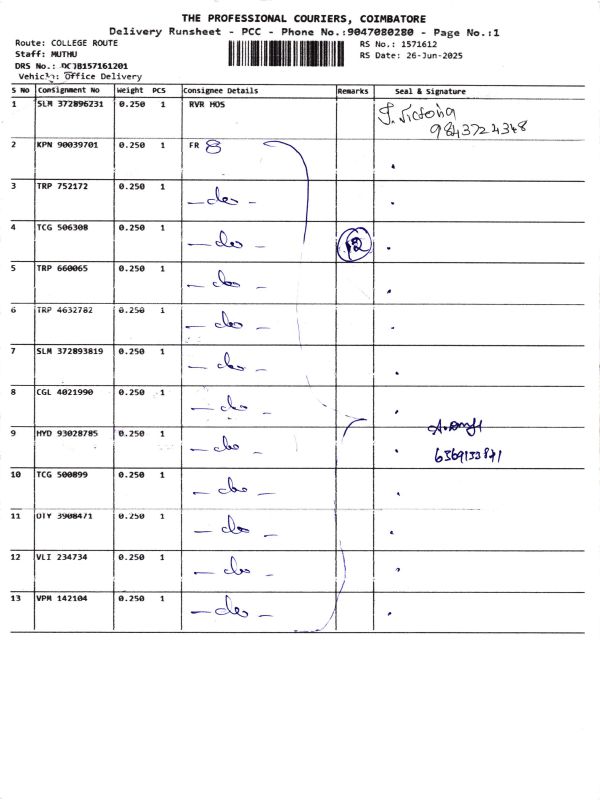 THE PROFESSIONAL COURIERS, COIMBATORE
Delivery Runsheet - PCC - Phone No.:9047080280 - Page No.:1
Route: COLLEGE ROUTE
RS No.: 1571612
Staff: MUTHU
RS Date: 26-Jun-2025
DRS No.: 157161201
Vehicle: Office Delivery
S No Consignment No Weight PCS Consignee Details Remarks Seal & Signature
1 SLM 372896231 0.250 1 RVR HOS Victoria
9843724348
2 KPN 90039701 0.250 1 FR 8 "
3 TRP 752172 0.250 1 - do - "
4 TCG 506308 0.250 1 - do - 12 "
5 TRP 660065 0.250 1 - do - "
6 TRP 4632782 0.250 1 - do - "
7 SLM 372893819 0.250 1 - do - "
8 CGL 4021990 0.250 1 - do - "
9 HYD 93028785 0.250 1 - do - "
6369133841
10 TCG 500899 0.250 1 - do - "
11 OTY 3908471 0.250 1 - do - "
12 VLI 234734 0.250 1 - do - "
13 VPM 142104 0.250 1 - do - "